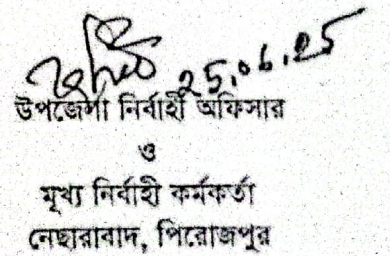 25.06.25
উপজেলা নির্বাহী অফিসার
ও
মূখ্য নির্বাহী কর্মকর্তা
নেছারাবাদ, পিরোজপুর